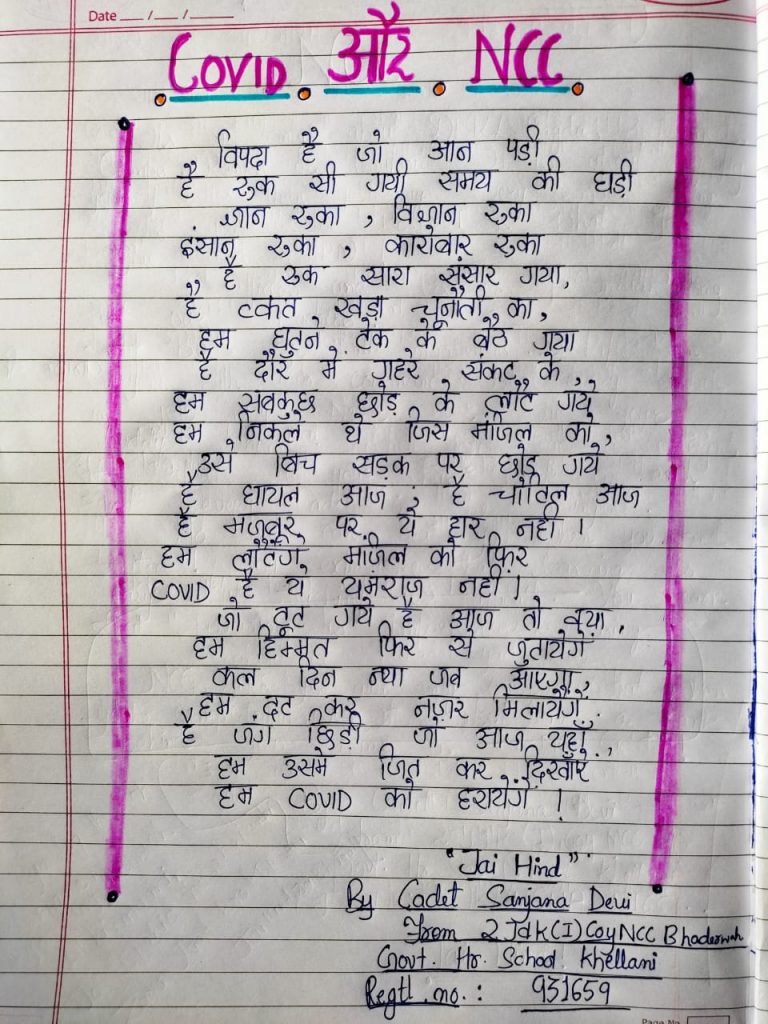 Date __/__/__
COVID और NCC
विपदा है जो आन पड़ी
है रुक सी गयी समय की घड़ी
ज्ञान रुका , विज्ञान रुका
इंसान रुका , कारोबार रुका
है रुक सारा संसार गया,
है टकत खड़ा चूनौती का,
हम घुतने टेक के बैठ गया
है दौर में गहरे संकट के ,
हम सबकुछ छोड़ के लौट गये
हम निकले थे जिस मंजिल को,
उसे बिच सड़क पर छोड़ गये
है घायल आज , है चोटिल आज
है मजबूर पर ये हार नही ।
हम लौटेंगे मंजिल को फिर
COVID है ये यमराज नही ।
जो टूट गये है आज तो क्या ,
हम हिम्मत फिर से जुतायेगे
कल दिन न्या जब आएगा,
हम दट कर नज़र मिलायेगें .
है जंग छिड़ी जो आज यहाँ ,
हम उसमे जित कर दिखाँए
हम COVID को हरायेगे !
"Jai Hind"
By Cadet Sanjana Devi
From 2 J&K(I) Coy NCC Bhaderwah
Govt. Hr. School Khellani
Regtl. no. : 931659
Page No.